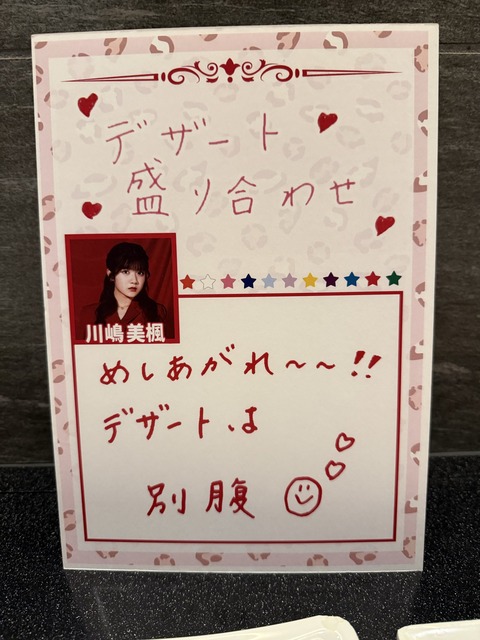 デザート
盛り合わせ
川嶋美楓
めしあがれ〜〜!!
デザートは
別腹